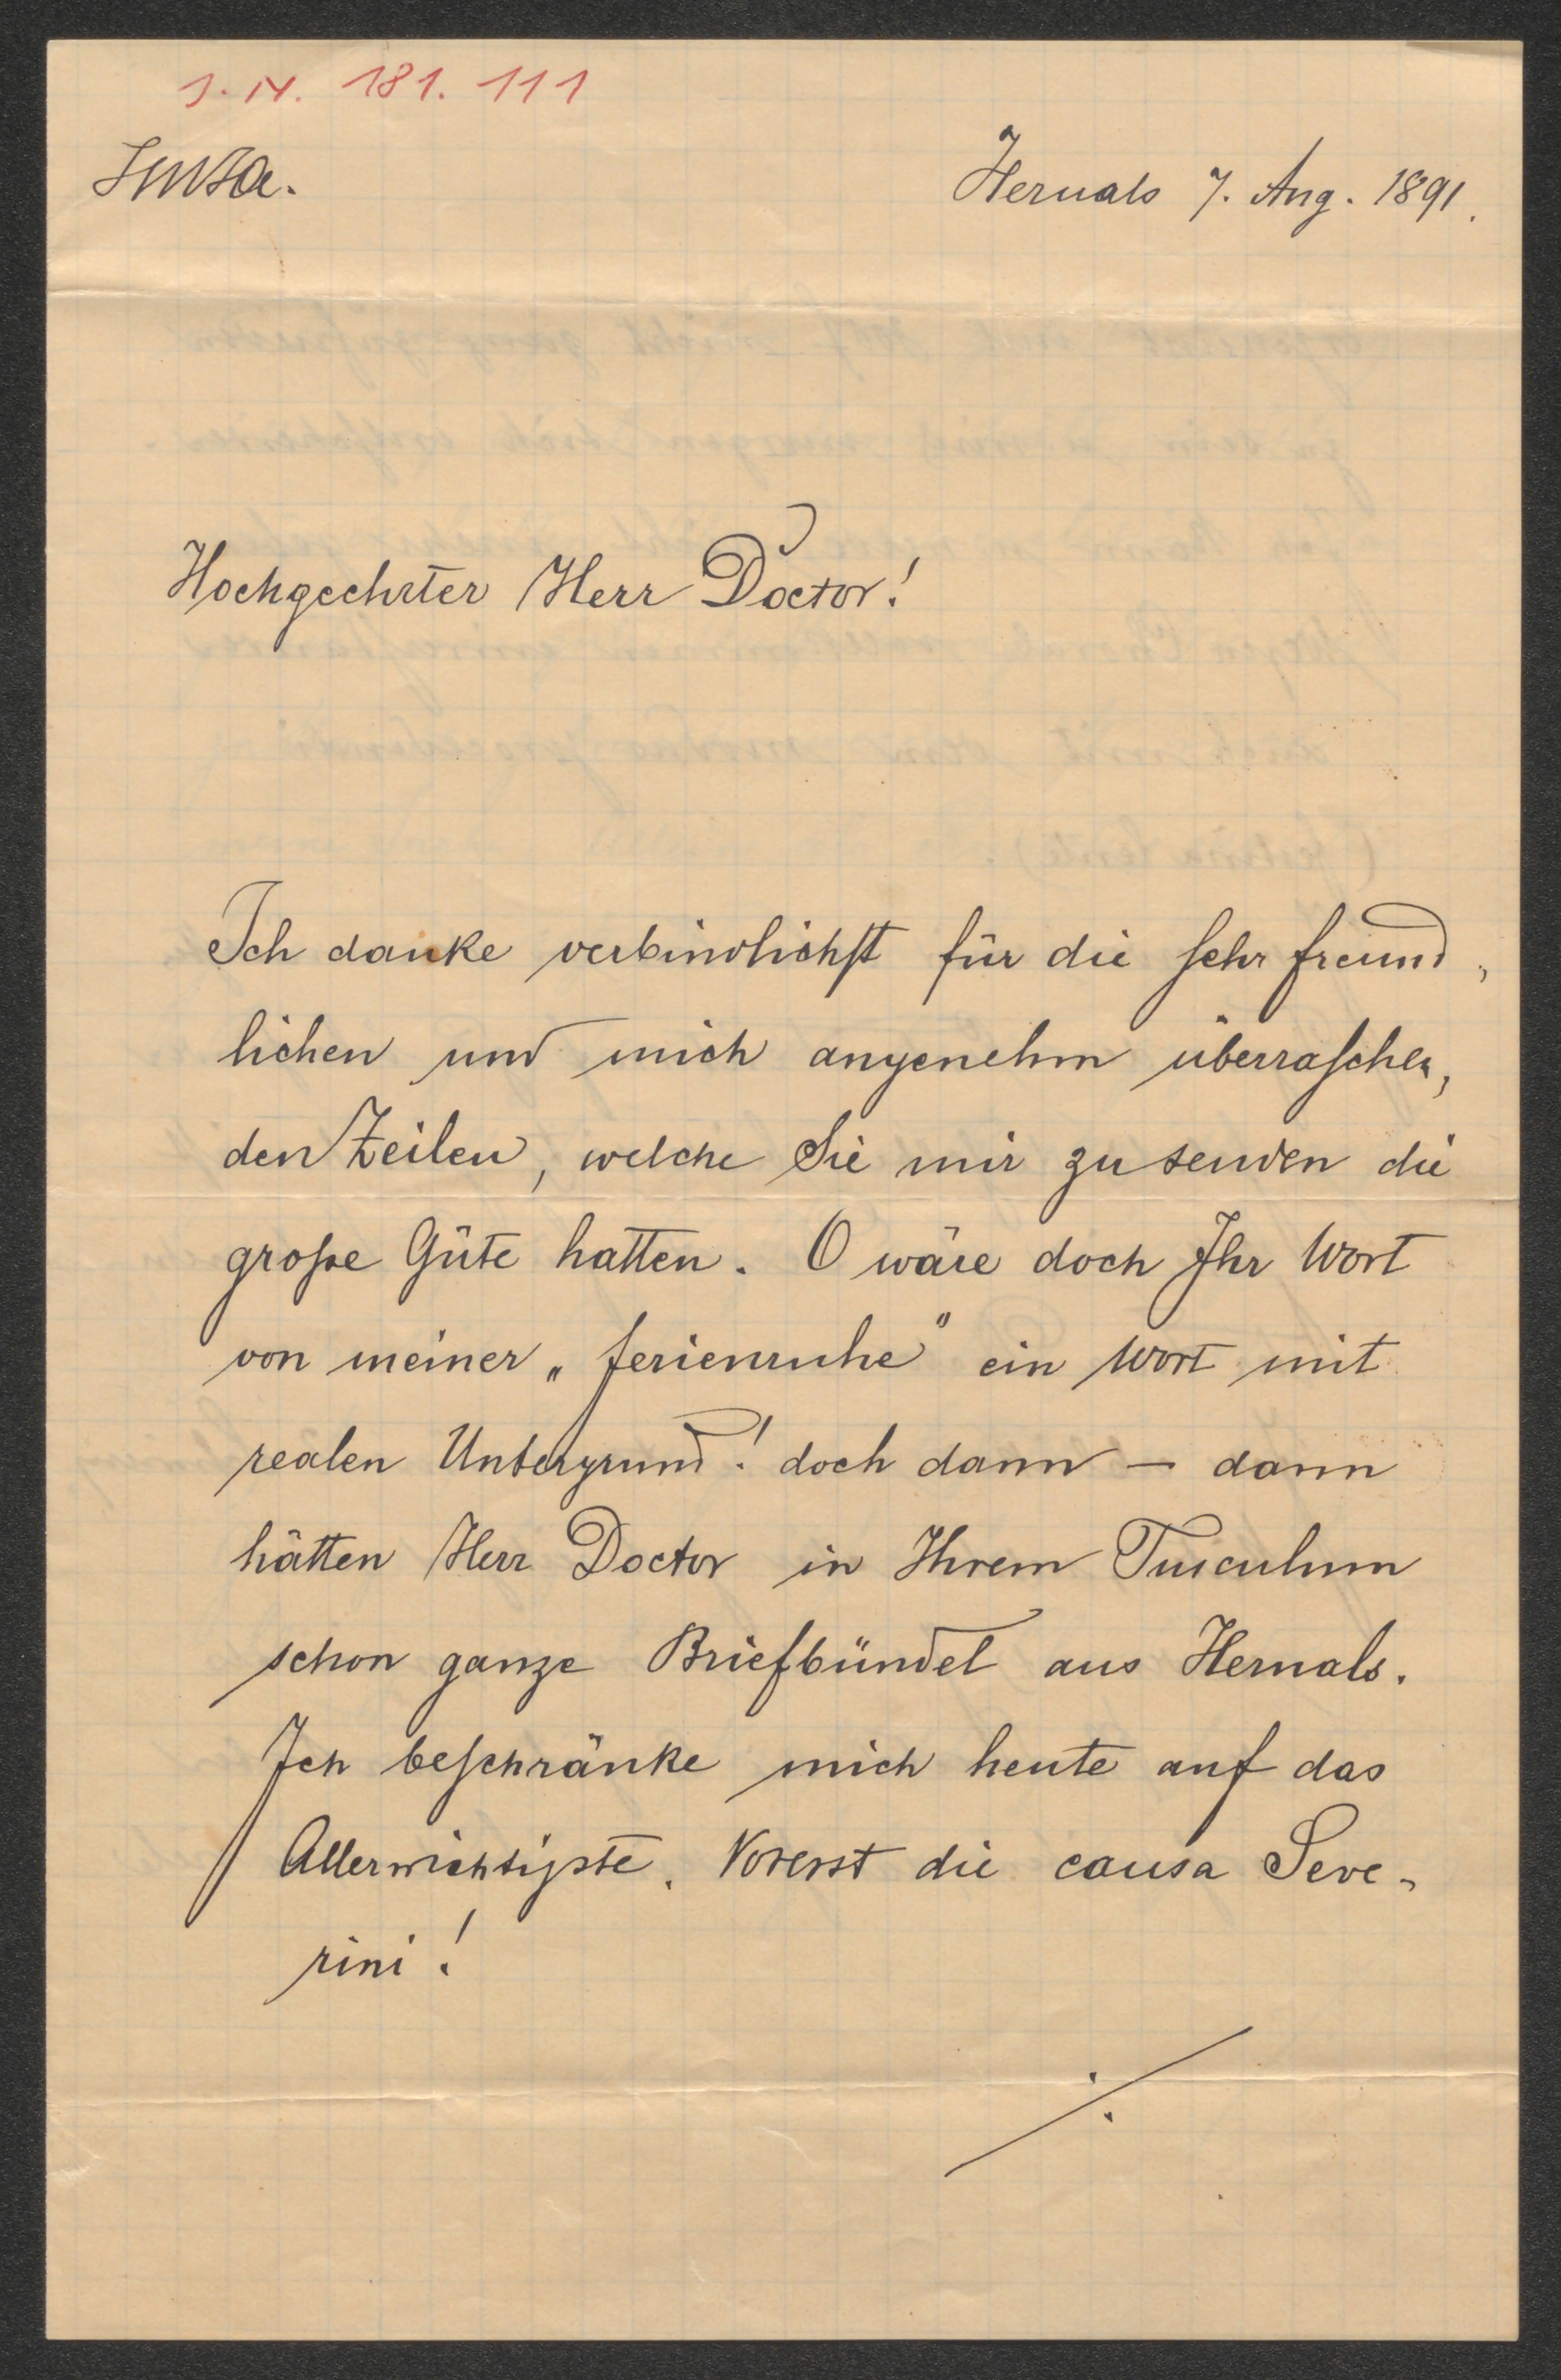 J. N. 181. 111
Hernals 7. Aug. 1891.
Hochgeehrter Herr Doctor!
Ich danke verbindlichst für die sehr freund-
lichen und mich angenehm überraschen-
den Zeilen, welche Sie mir zu senden die
große Güte hatten. O wäre doch Ihr Wort
von meiner „Ferienruhe" ein Wort mit
realen Untergrund! doch dann – dann
hätten Herr Doctor in Ihrem Tusculum
schon ganze Briefbündel aus Hernals.
Ich beschränke mich heute auf das
Allerwichtigste. Vorerst die causa Seve-
rini!